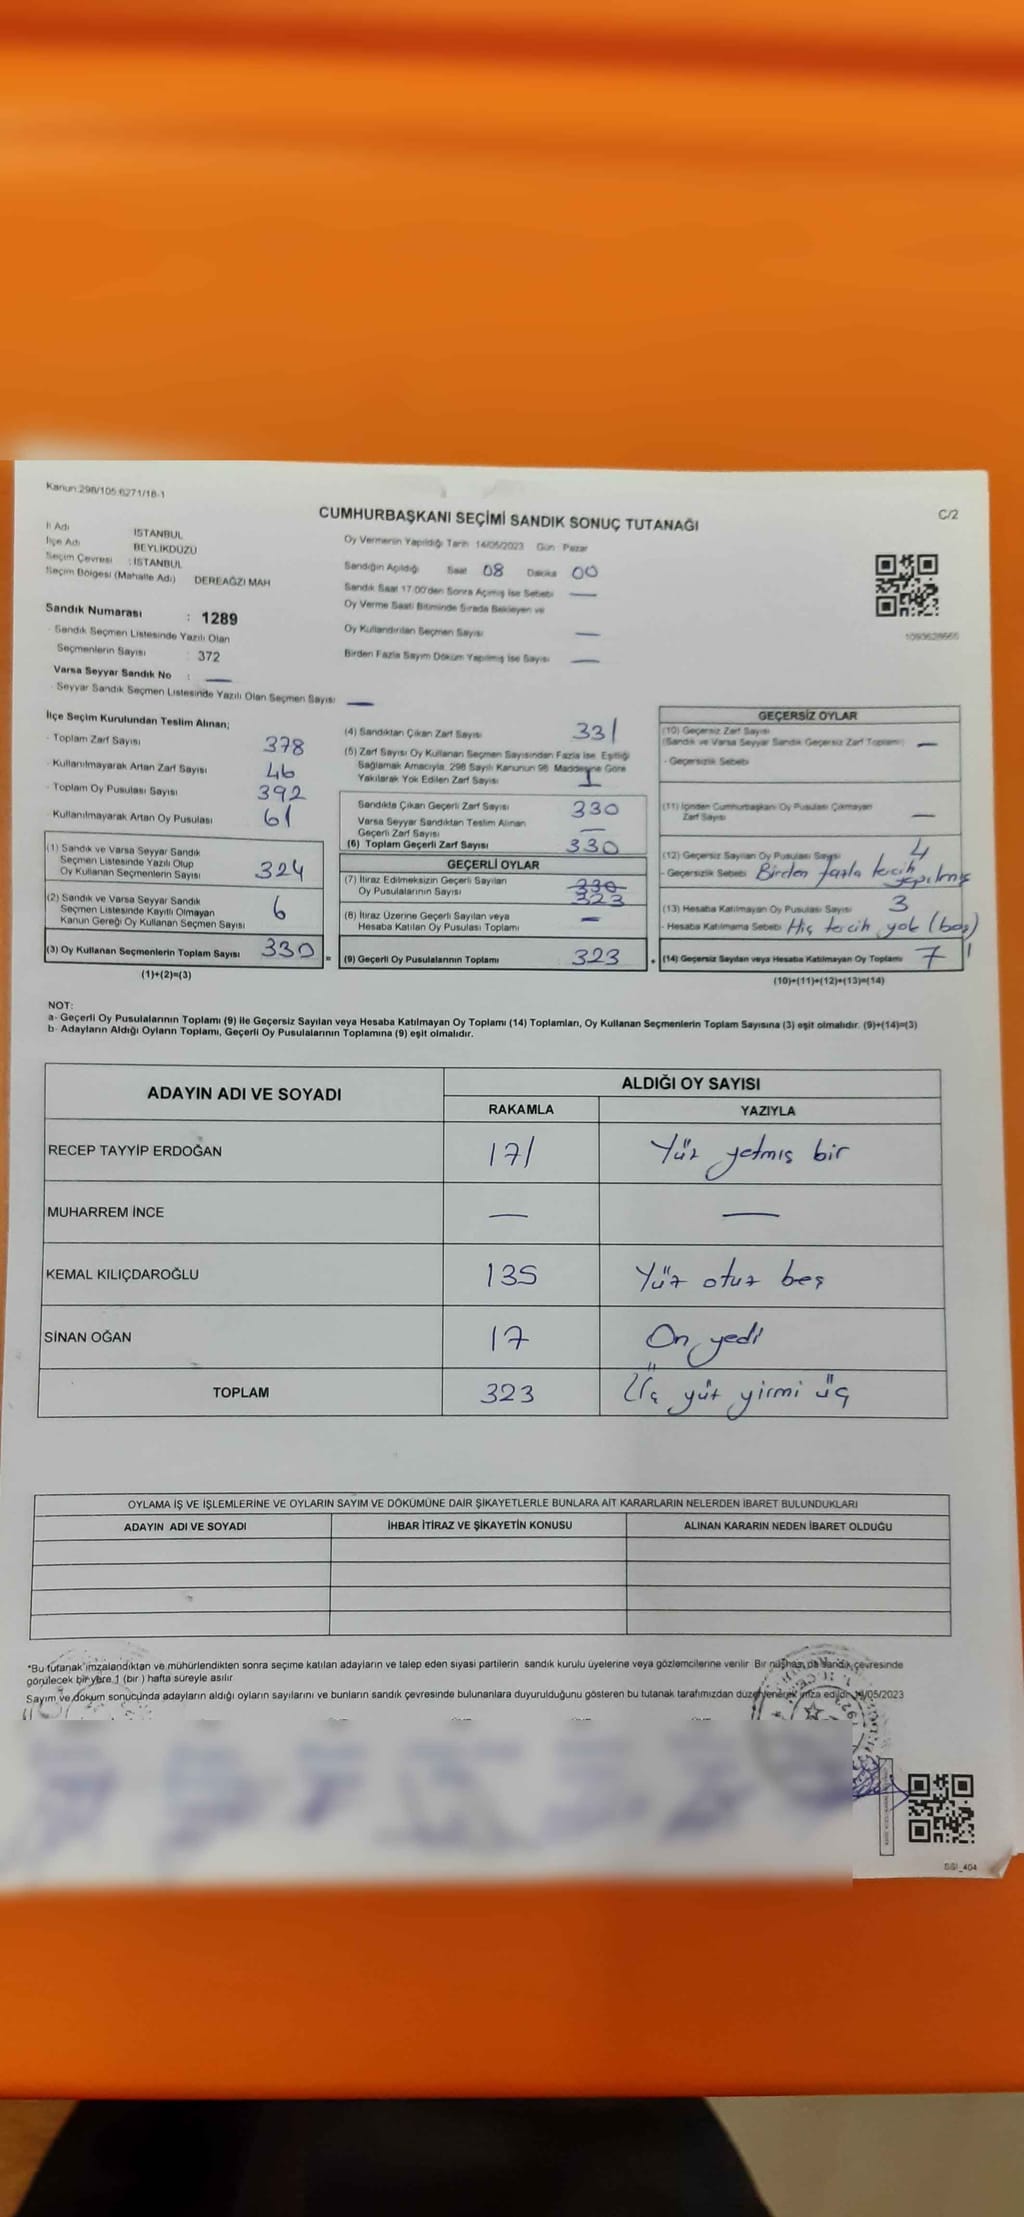 Kanun:298/105.6271/18-1
CUMHURBAŞKANI SEÇİMİ SANDIK SONUÇ TUTANAĞI
C/2
İl Adı İSTANBUL
İlçe Adı BEYLİKDÜZÜ
Seçim Çevresi : İSTANBUL
Seçim Bölgesi (Mahalle Adı) DEREAĞZI MAH
Sandık Numarası : 1289
- Sandık Seçmen Listesinde Yazılı Olan
Seçmenlerin Sayısı : 372
Varsa Seyyar Sandık No : —
- Seyyar Sandık Seçmen Listesinde Yazılı Olan Seçmen Sayısı —
Oy Vermenin Yapıldığı Tarih 14/05/2023 Gün : Pazar
Sandığın Açıldığı Saat 08 Dakika 00
Sandık Saat 17.00'den Sonra Açımış İse Sebebi —
Oy Verme Saati Bitiminde Sırada Bekleyen ve
Oy Kullandırılan Seçmen Sayısı —
Birden Fazla Sayım Döküm Yapılmış İse Sayısı —
1093628665
İlçe Seçim Kurulundan Teslim Alınan;
- Toplam Zarf Sayısı 378
- Kullanılmayarak Artan Zarf Sayısı 46
- Toplam Oy Pusulası Sayısı 392
- Kullanılmayarak Artan Oy Pusulası 61
(1) Sandık ve Varsa Seyyar Sandık
Seçmen Listesinde Yazılı Olup
Oy Kullanan Seçmenlerin Sayısı 324
(2) Sandık ve Varsa Seyyar Sandık
Seçmen Listesinde Kayıtlı Olmayan
Kanun Gereği Oy Kullanan Seçmen Sayısı 6
(3) Oy Kullanan Seçmenlerin Toplam Sayısı 330 =
(1)+(2)=(3)
(4) Sandıktan Çıkan Zarf Sayısı 331
(5) Zarf Sayısı Oy Kullanan Seçmen Sayısından Fazla İse, Eşitliği
Sağlamak Amacıyla, 298 Sayılı Kanunun 98. Maddesine Göre
Yakılarak Yok Edilen Zarf Sayısı 1
Sandıkta Çıkan Geçerli Zarf Sayısı 330
Varsa Seyyar Sandıktan Teslim Alınan
Geçerli Zarf Sayısı —
(6) Toplam Geçerli Zarf Sayısı 330
GEÇERLİ OYLAR
(7) İtiraz Edilmeksizin Geçerli Sayılan 330
Oy Pusulalarının Sayısı 323
(8) İtiraz Üzerine Geçerli Sayılan veya
Hesaba Katılan Oy Pusulası Toplamı —
(9) Geçerli Oy Pusulalarının Toplamı 323 +
GEÇERSİZ OYLAR
(10) Geçersiz Zarf Sayısı
(Sandık ve Varsa Seyyar Sandık Geçersiz Zarf Toplamı) —
- Geçersizlik Sebebi
(11) İçinden Cumhurbaşkanı Oy Pusulası Çıkmayan
Zarf Sayısı —
(12) Geçersiz Sayılan Oy Pusulası Sayısı 4
- Geçersizlik Sebebi Birden fazla tercih
yapılmış
(13) Hesaba Katılmayan Oy Pusulası Sayısı 3
- Hesaba Katılmama Sebebi Hiç tercih yok (boş)
(14) Geçersiz Sayılan veya Hesaba Katılmayan Oy Toplamı 7
(10)+(11)+(12)+(13)=(14)
NOT:
a- Geçerli Oy Pusulalarının Toplamı (9) ile Geçersiz Sayılan veya Hesaba Katılmayan Oy Toplamı (14) Toplamları, Oy Kullanan Seçmenlerin Toplam Sayısına (3) eşit olmalıdır. (9)+(14)=(3)
b- Adayların Aldığı Oyların Toplamı, Geçerli Oy Pusulalarının Toplamına (9) eşit olmalıdır.
ADAYIN ADI VE SOYADI ALDIĞI OY SAYISI
RAKAMLA YAZIYLA
RECEP TAYYİP ERDOĞAN 171 Yüz yetmiş bir
MUHARREM İNCE — —
KEMAL KILIÇDAROĞLU 135 Yüz otuz beş
SİNAN OĞAN 17 On yedi
TOPLAM 323 Üç yüz yirmi üç
OYLAMA İŞ VE İŞLEMLERİNE VE OYLARIN SAYIM VE DÖKÜMÜNE DAİR ŞİKAYETLERLE BUNLARA AİT KARARLARIN NELERDEN İBARET BULUNDUKLARI
ADAYIN ADI VE SOYADI İHBAR İTİRAZ VE ŞİKAYETİN KONUSU ALINAN KARARIN NEDEN İBARET OLDUĞU
*Bu tutanak imzalandıktan ve mühürlendikten sonra seçime katılan adayların ve talep eden siyasi partilerin sandık kurulu üyelerine veya gözlemcilerine verilir. Bir nüshası da sandık çevresinde
görülecek bir yere 1 (bir) hafta süreyle asılır.
Sayım ve döküm sonucunda adayların aldığı oyların sayılarını ve bunların sandık çevresinde bulunanlara duyurulduğunu gösteren bu tutanak tarafımızdan düzenlenerek imza edildi. /05/2023
SSI_404